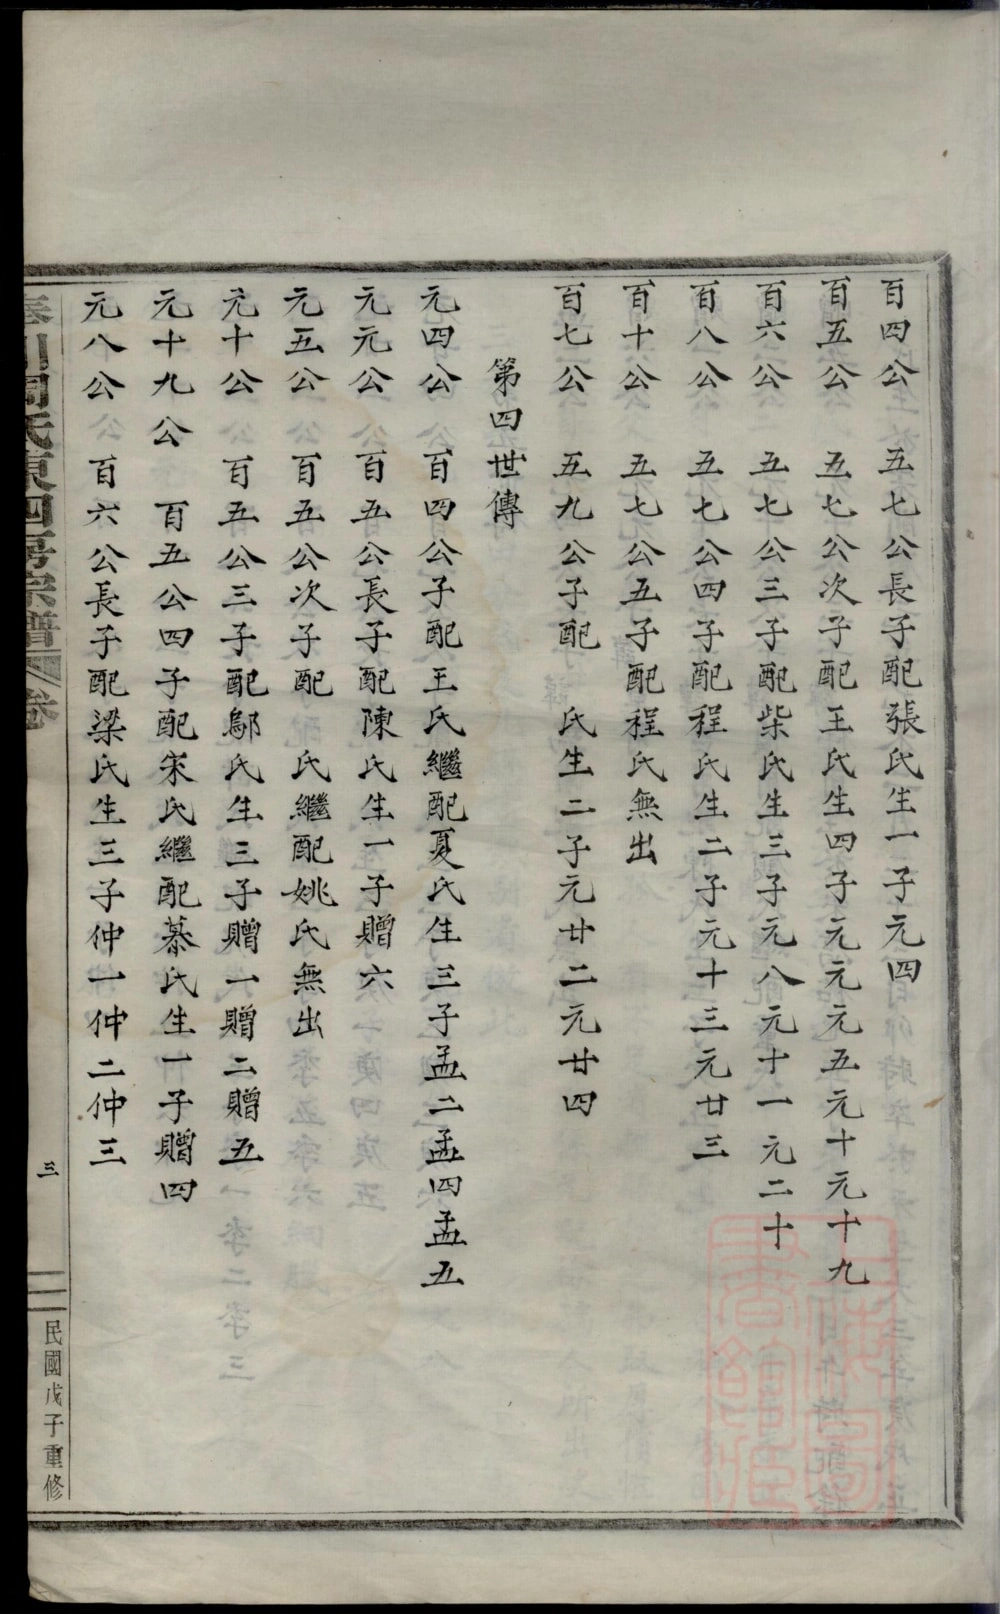 百四公　五七公長子配張氏生一子元四
百五公　五七公次子配王氏生四子元元元五元十元十九
百六公　五七公三子配柴氏生三子元八元十一元二十
百八公　五七公四子配程氏生二子元十三元廿三
百十公　五七公五子配程氏無出
百七公　五九公子配　氏生二子元廿二元廿四
第四世傳
元四公　百四公子配王氏繼配夏氏生三子孟二孟四孟五
元元公　百五公長子配陳氏生一子贈六
元五公　百五公次子配　氏繼配姚氏無出
元十公　百五公三子配鄔氏生三子贈一贈二贈五
元十九公　百五公四子配宋氏繼配綦氏生一子贈四
元八公　百六公長子配梁氏生三子仲一仲二仲三
川周氏東四房宗譜　卷
三
民國戊子重修
上海圖書館藏